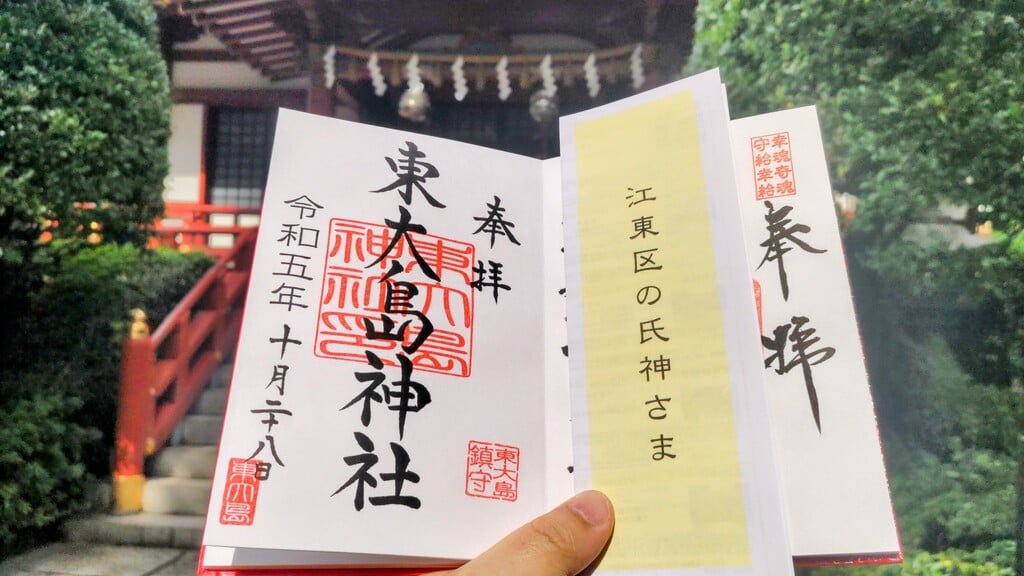 幸魂奇魂
守給幸給
奉拝
江東区の氏神さま
奉拝
東大島神社
東大島
神社印
令和五年十月二十八日
東大島
鎮守
東大島